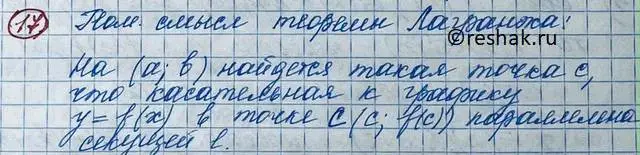 17 Геом. смысл теоремы Лагранжа:
©reshak.ru
На (a; b) найдется такая точка c,
что касательная к графику
y = f(x) в точке C (c; f(c)) параллельна
секущей l.